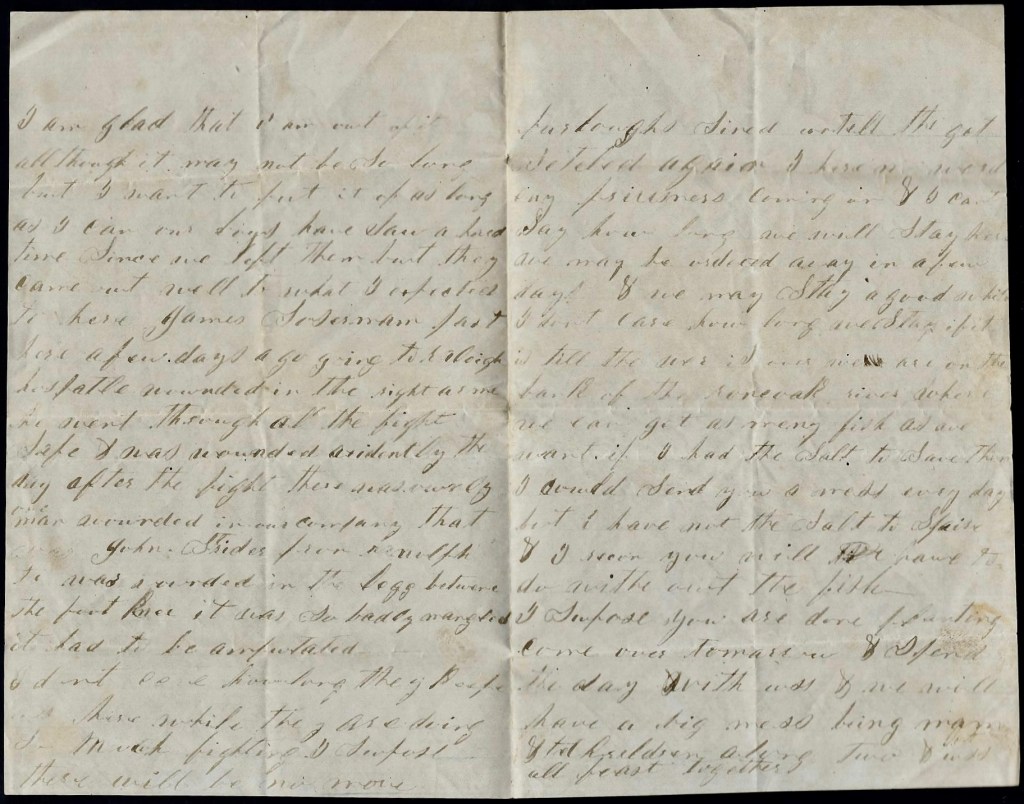 I am glad that i am out of it
allthough it may not be so long
but I want to put it of as long
as I can our boys have saw a hard
time Since we left them but they
came out well to what I expected
to here James past
here a few days a go going to Raleigh
hospatle wounded in the right arme
he went through all the fight
Safe & was wounded acidently the
day after the fight there was
one man wounded in our company that
was John Strider from
he was wounded in the legg between
the foot & knee it was So badly mangled
it had to be amputated
I dont care how long they Keepe
us here while they are doing
So Much fighting I Supose
there will be no more
furloughs Sined untell the get
Setteled again I here no word
eny prisiners coming on & I cant
Say how long we will Stay here
we may be ordered away in a few
days & we may Stay a good while
I dont care how long we Stay if it
is till the wer is over we are on the
bank of the roneoak river where
we can get as meny fish as we
want if I had the Salt to Save them
I could Send you a mess evry day
but i have not the Salt to Spair
& I recon you will have to
do withe out the fish
I Supose you are done planting
come over tomarrow & Spend
the day with us & we will
have a big mess bring mam
& the children along
all feast together